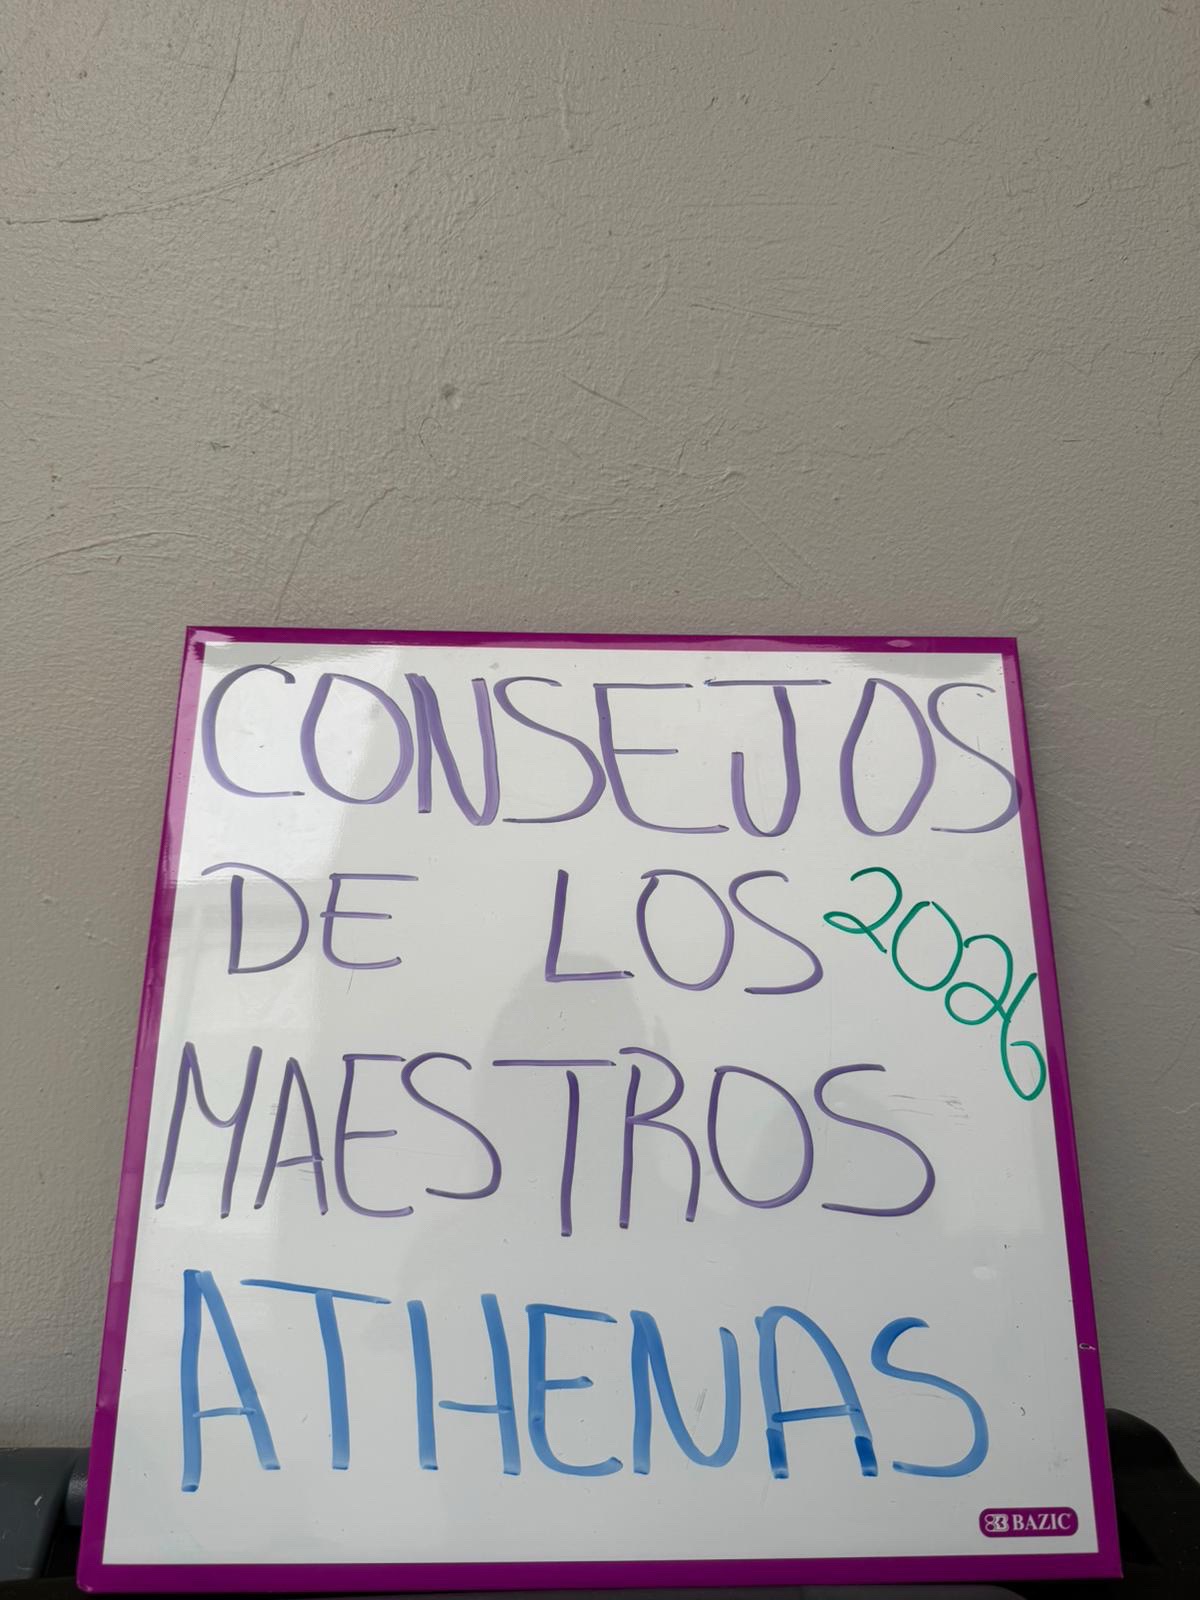 CONSEJOS
DE LOS 2026
MAESTROS
ATHENAS
BAZIC